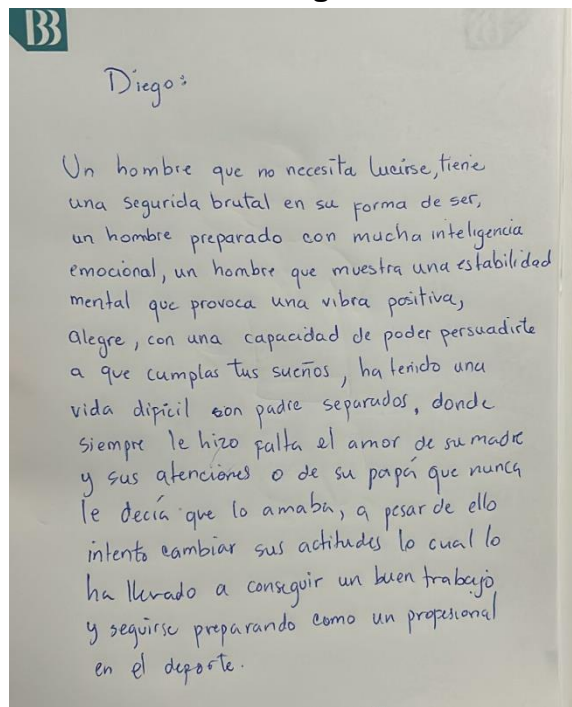 BB
Diego:
Un hombre que no necesita lucirse, tiene
una segurida brutal en su forma de ser,
un hombre preparado con mucha inteligencia
emocional, un hombre que muestra una estabilidad
mental que provoca una vibra positiva,
alegre, con una capacidad de poder persuadirte
a que cumplas tus sueños, ha tenido una
vida dificil con padre separados, donde
siempre le hizo falta el amor de su madre
y sus atenciones o de su papá que nunca
le decía que lo amaba, a pesar de ello
intento cambiar sus actitudes lo cual lo
ha llevado a conseguir un buen trabajo
y seguirse preparando como un profesional
en el deporte.